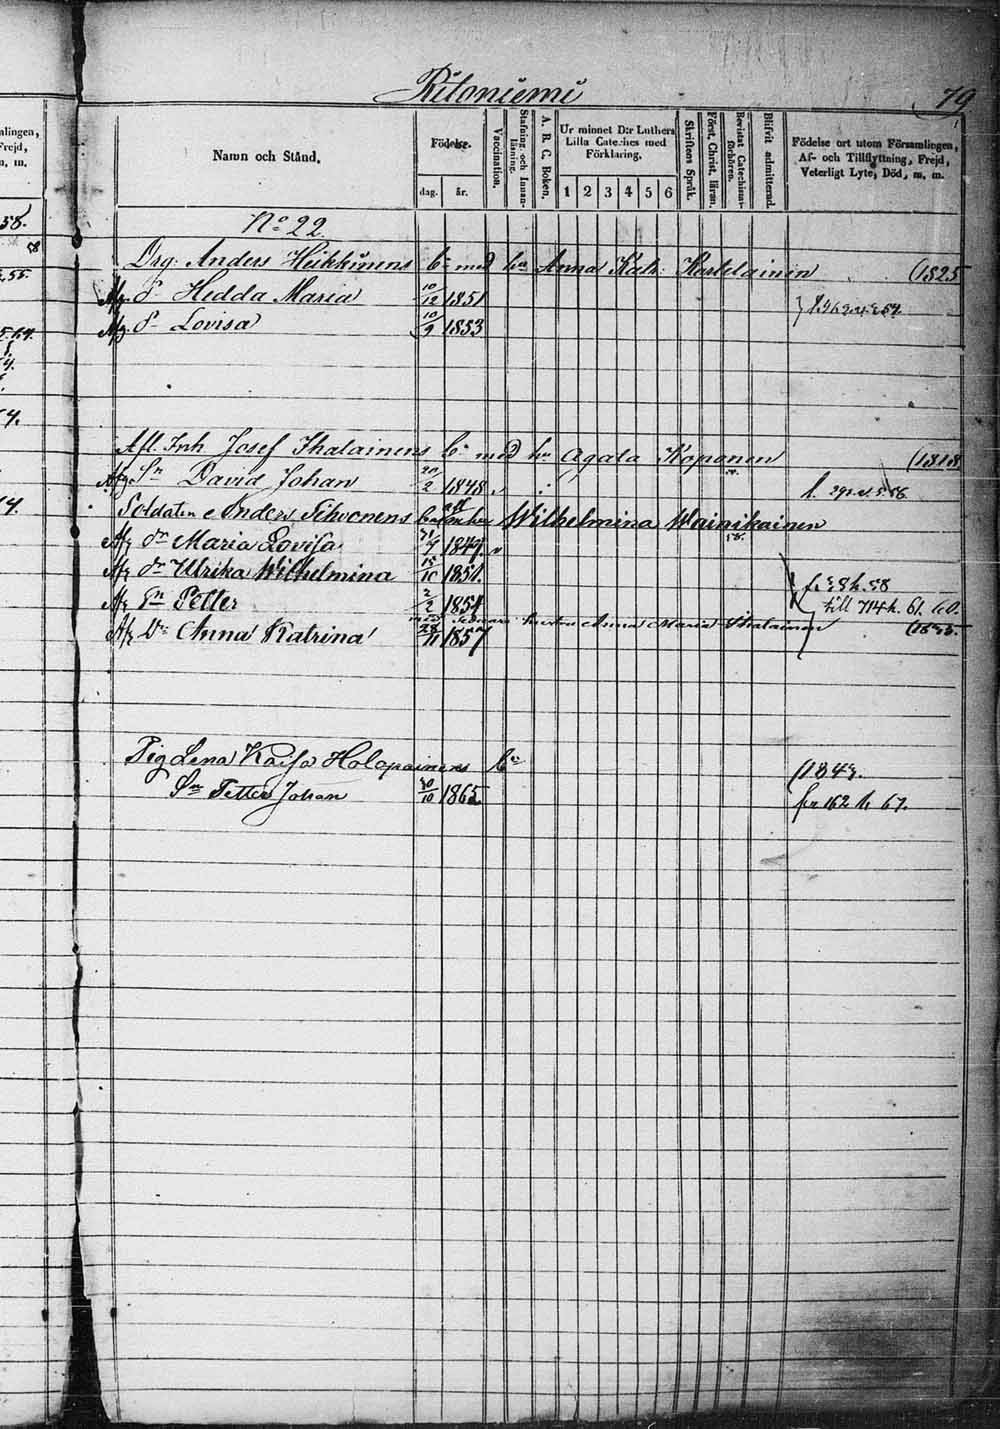 Ritoniemi
79
Namn och Stånd.
Födelse.
dag. år.
Vaccination.
Stafning och Innanläsning.
A. B. C. Boken.
Ur minnet D:r Luthers Lilla Cateches med Förklaring.
1 2 3 4 5 6
Skriftens Språk.
Först. Christ. lären.
Bevistat Catechismiförhören.
Blifvit admitterad.
Födelse ort utom Församlingen,
Af- och Tillflyttning, Frejd,
Veterligt Lyte, Död, m. m.
No 22.
Drg: Anders Heikkinens Bn med hu Anna Katr: Kartelainen (1825
Afg. Dr Hedda Maria 10/12 1851
Afg. Dr Lovisa 10/9 1853
Afl. Inh Josef Ihalainens Bn med hu Agata Koponen (1818
Afg Sn David Johan 20/2 1848
Soldaten Anders Tihvonens Wilhelmina Wainikainen
Afg dr Maria Lovisa 1847
Afg dr Ulrika Wilhelmina 15/10 1851.
Afg Sn Petter 2/2 1854
till 714 h. 61.
Anna Maria Ihalainen
Afg Dr Anna Katrina 28/11 1857
Pig Lena Kaisa Holopainens Bn (1843.
Sn Petter Johan 30/10 1865. fr 162 h 67.